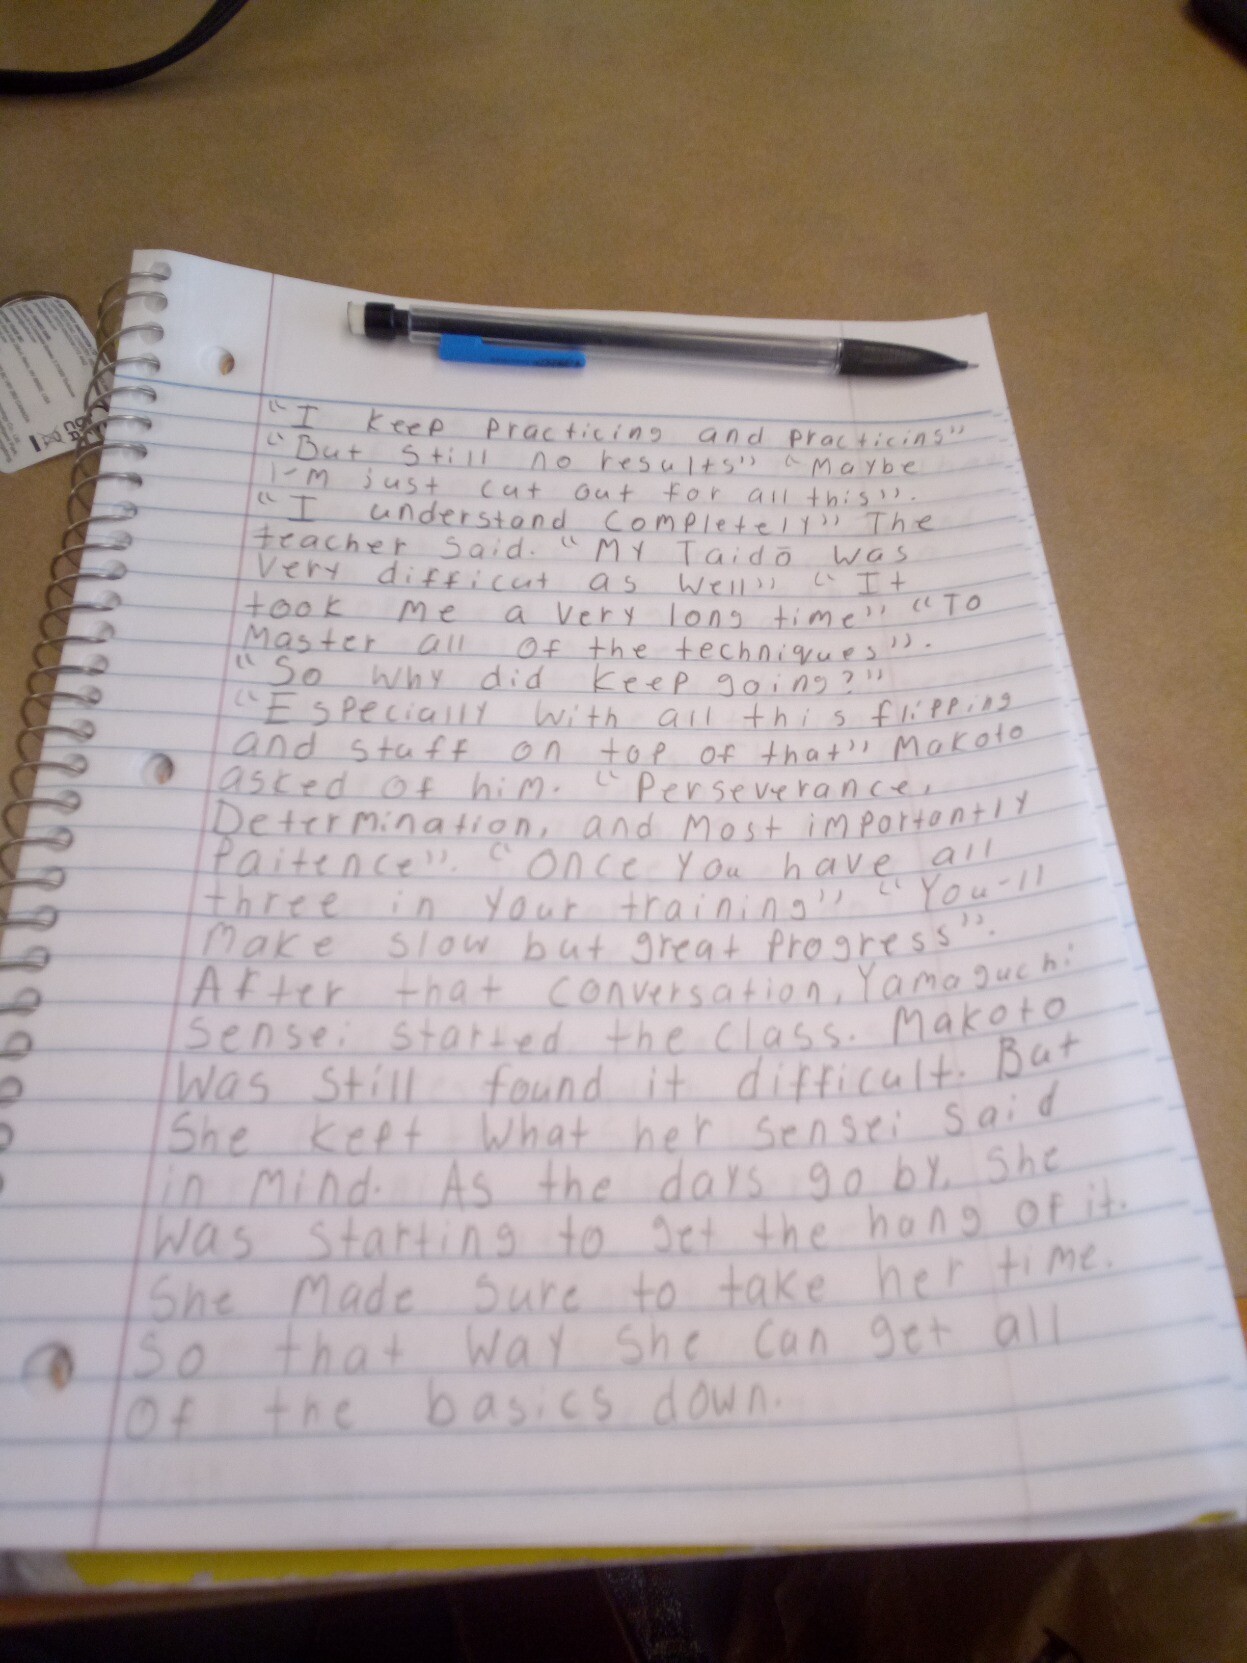 "I keep practicing and practicing"
"But still no results" "Maybe
I-m just cut out for all this".
"I understand completely" The
teacher said. "My Taidō was
very difficut as well" "It
took me a very long time" "To
master all of the techniques".
"So why did keep going?"
"Especially with all this flipping
and stuff on top of that" Makoto
asked of him. "Perseverance,
Determination, and most importantly
Paitence". "Once you have all
three in your training" "You-ll
make slow but great progress".
After that conversation, Yamaguchi
sensei started the class. Makoto
was still found it difficult. But
she kept what her sensei said
in mind. As the days go by, she
was starting to get the hang of it.
She made sure to take her time.
So that way she can get all
of the basics down.